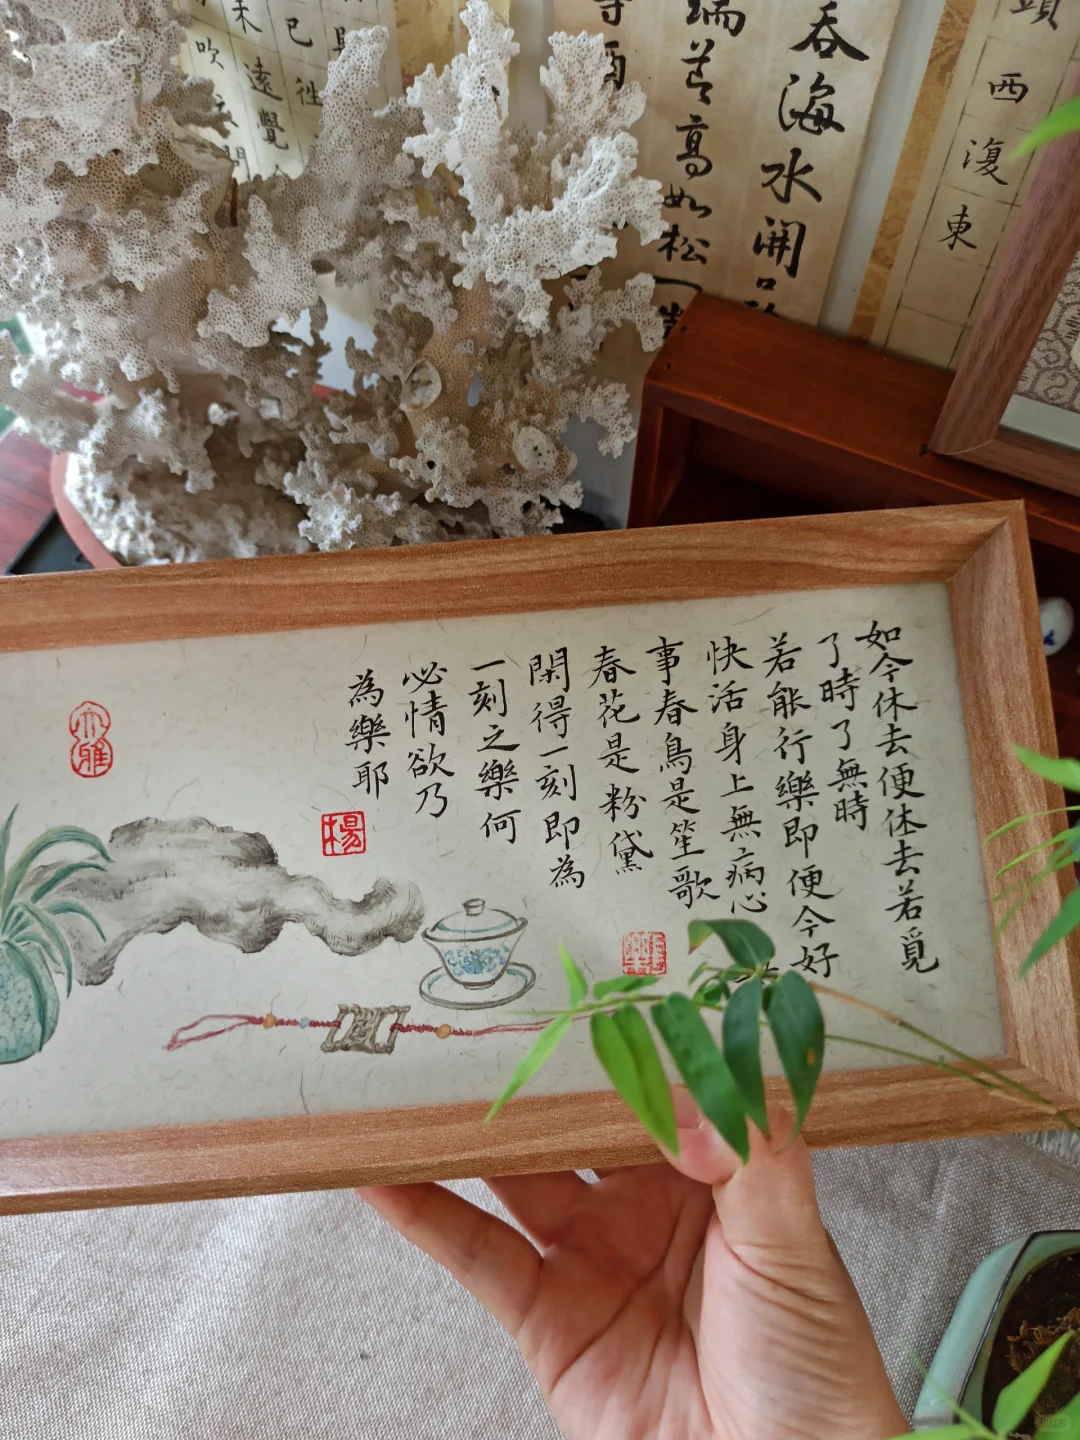 頭西復東
吞海水開口
高如松一
已往
遠覺
吹
如今休去便休去若覓
了時了無時
若能行樂即便今好
快活身上無病心
事春鳥是笙歌
春花是粉黛
閑得一刻即為
一刻之樂何
必情欲乃
為樂耶
楊
大雅